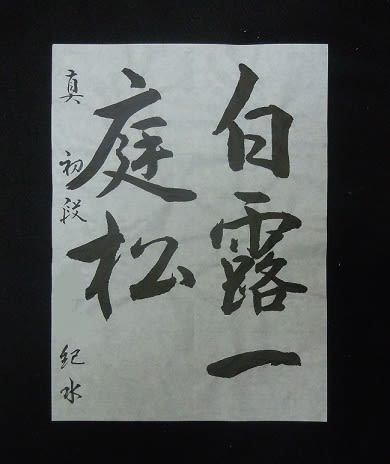 白露一
庭松
真 初段 紀水